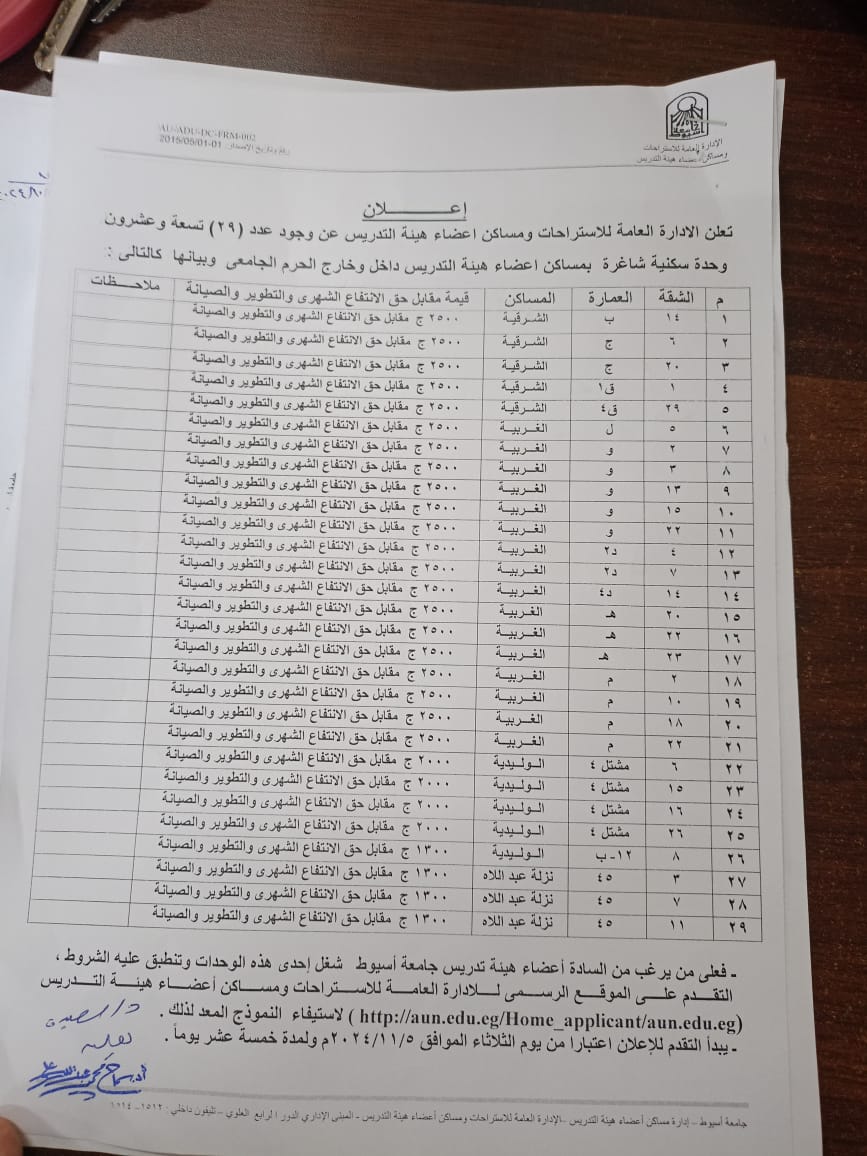 AU-ADU-DC-FRM-002
رقم وتاريخ الاصدار: 01-2015/05/01
الإدارة العامة للاستراحات
ومساكن أعضاء هيئة التدريس
إعـــــــــلان
تعلن الادارة العامة للاستراحات ومساكن اعضاء هيئة التدريس عن وجود عدد (٢٩) تسعة وعشرون
وحدة سكنية شاغرة بمساكن اعضاء هيئة التدريس داخل وخارج الحرم الجامعى وبيانها كالتالى :
م الشقة العمارة المساكن قيمة مقابل حق الانتفاع الشهرى والتطوير والصيانة ملاحظات
١ ١٤ ب الشرقية ٢٥٠٠ ج مقابل حق الانتفاع الشهرى والتطوير والصيانة
٢ ٦ ج الشرقية ٢٥٠٠ ج مقابل حق الانتفاع الشهرى والتطوير والصيانة
٣ ٢٠ ج الشرقية ٢٥٠٠ ج مقابل حق الانتفاع الشهرى والتطوير والصيانة
٤ ١ ق١ الشرقية ٢٥٠٠ ج مقابل حق الانتفاع الشهرى والتطوير والصيانة
٥ ٢٩ ق٤ الشرقية ٢٥٠٠ ج مقابل حق الانتفاع الشهرى والتطوير والصيانة
٦ ٥ ل الغربية ٢٥٠٠ ج مقابل حق الانتفاع الشهرى والتطوير والصيانة
٧ ٢ و الغربية ٢٥٠٠ ج مقابل حق الانتفاع الشهرى والتطوير والصيانة
٨ ٣ و الغربية ٢٥٠٠ ج مقابل حق الانتفاع الشهرى والتطوير والصيانة
٩ ١٣ و الغربية ٢٥٠٠ ج مقابل حق الانتفاع الشهرى والتطوير والصيانة
١٠ ١٥ و الغربية ٢٥٠٠ ج مقابل حق الانتفاع الشهرى والتطوير والصيانة
١١ ٢٢ و الغربية ٢٥٠٠ ج مقابل حق الانتفاع الشهرى والتطوير والصيانة
١٢ ٤ د٢ الغربية ٢٥٠٠ ج مقابل حق الانتفاع الشهرى والتطوير والصيانة
١٣ ٧ د٢ الغربية ٢٥٠٠ ج مقابل حق الانتفاع الشهرى والتطوير والصيانة
١٤ ١٤ د٤ الغربية ٢٥٠٠ ج مقابل حق الانتفاع الشهرى والتطوير والصيانة
١٥ ٢٠ هـ الغربية ٢٥٠٠ ج مقابل حق الانتفاع الشهرى والتطوير والصيانة
١٦ ٢٢ هـ الغربية ٢٥٠٠ ج مقابل حق الانتفاع الشهرى والتطوير والصيانة
١٧ ٢٣ هـ الغربية ٢٥٠٠ ج مقابل حق الانتفاع الشهرى والتطوير والصيانة
١٨ ٢ م الغربية ٢٥٠٠ ج مقابل حق الانتفاع الشهرى والتطوير والصيانة
١٩ ١٠ م الغربية ٢٥٠٠ ج مقابل حق الانتفاع الشهرى والتطوير والصيانة
٢٠ ١٨ م الغربية ٢٥٠٠ ج مقابل حق الانتفاع الشهرى والتطوير والصيانة
٢١ ٢٢ م الغربية ٢٥٠٠ ج مقابل حق الانتفاع الشهرى والتطوير والصيانة
٢٢ ٦ مشتل ٤ الوليدية ٢٠٠٠ ج مقابل حق الانتفاع الشهرى والتطوير والصيانة
٢٣ ١٥ مشتل ٤ الوليدية ٢٠٠٠ ج مقابل حق الانتفاع الشهرى والتطوير والصيانة
٢٤ ١٦ مشتل ٤ الوليدية ٢٠٠٠ ج مقابل حق الانتفاع الشهرى والتطوير والصيانة
٢٥ ٢٦ مشتل ٤ الوليدية ٢٠٠٠ ج مقابل حق الانتفاع الشهرى والتطوير والصيانة
٢٦ ٨ ١٢- ب الوليدية ١٣٠٠ ج مقابل حق الانتفاع الشهرى والتطوير والصيانة
٢٧ ٣ ٤٥ نزلة عبد اللاه ١٣٠٠ ج مقابل حق الانتفاع الشهرى والتطوير والصيانة
٢٨ ٧ ٤٥ نزلة عبد اللاه ١٣٠٠ ج مقابل حق الانتفاع الشهرى والتطوير والصيانة
٢٩ ١١ ٤٥ نزلة عبد اللاه ١٣٠٠ ج مقابل حق الانتفاع الشهرى والتطوير والصيانة
- فعلى من يرغب من السادة أعضاء هيئة تدريس جامعة أسيوط شغل إحدى هذه الوحدات وتنطبق عليه الشروط ،
التقدم على الموقع الرسمى للادارة العامة للاستراحات ومساكن أعضاء هيئة التدريس
(http://aun.edu.eg/Home_applicant/aun.edu.eg ) لاستيفاء النموذج المعد لذلك .
- يبدأ التقدم للإعلان اعتبارا من يوم الثلاثاء الموافق ٢٠٢٤/١١/٥م ولمدة خمسة عشر يوماً .
جامعة أسيوط – إدارة مساكن أعضاء هيئة التدريس –الإدارة العامة للاستراحات ومساكن أعضاء هيئة التدريس - المبنى الإداري الدور الرابع العلوي – تليفون داخلي :